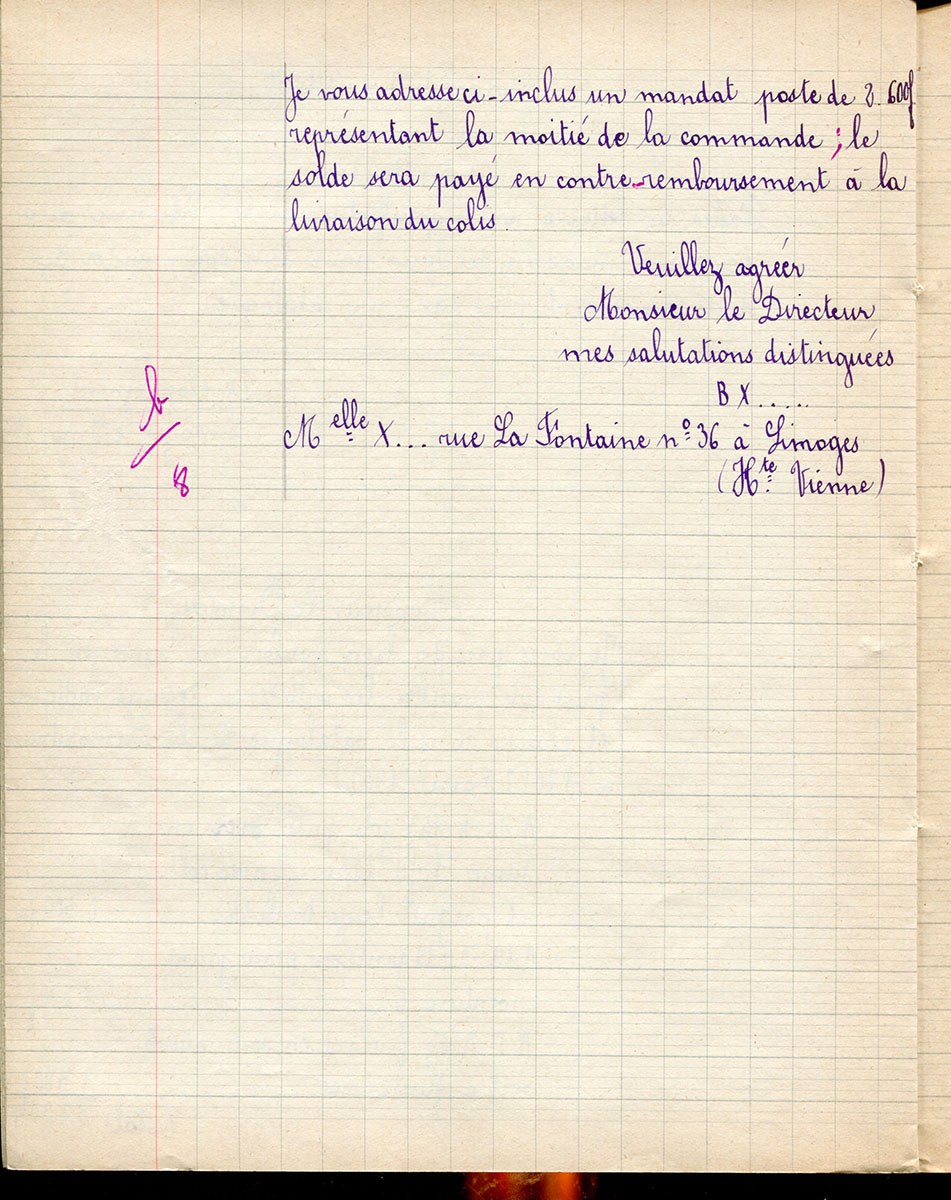 Je vous adresse ci-inclus un mandat poste de 2.600f
représentant la moitié de la commande ; le
solde sera payé en contre-remboursement à la
livraison du colis.
Veuillez agréer
Monsieur le Directeur
mes salutations distinguées
B X.....
Melle X... rue La Fontaine no 36 à Limoges
(Hte Vienne)
b/8